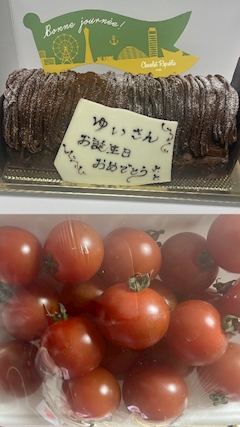 Bonne journée!
Chocolat Republic
ゆいさん
お誕生日
おめでとう